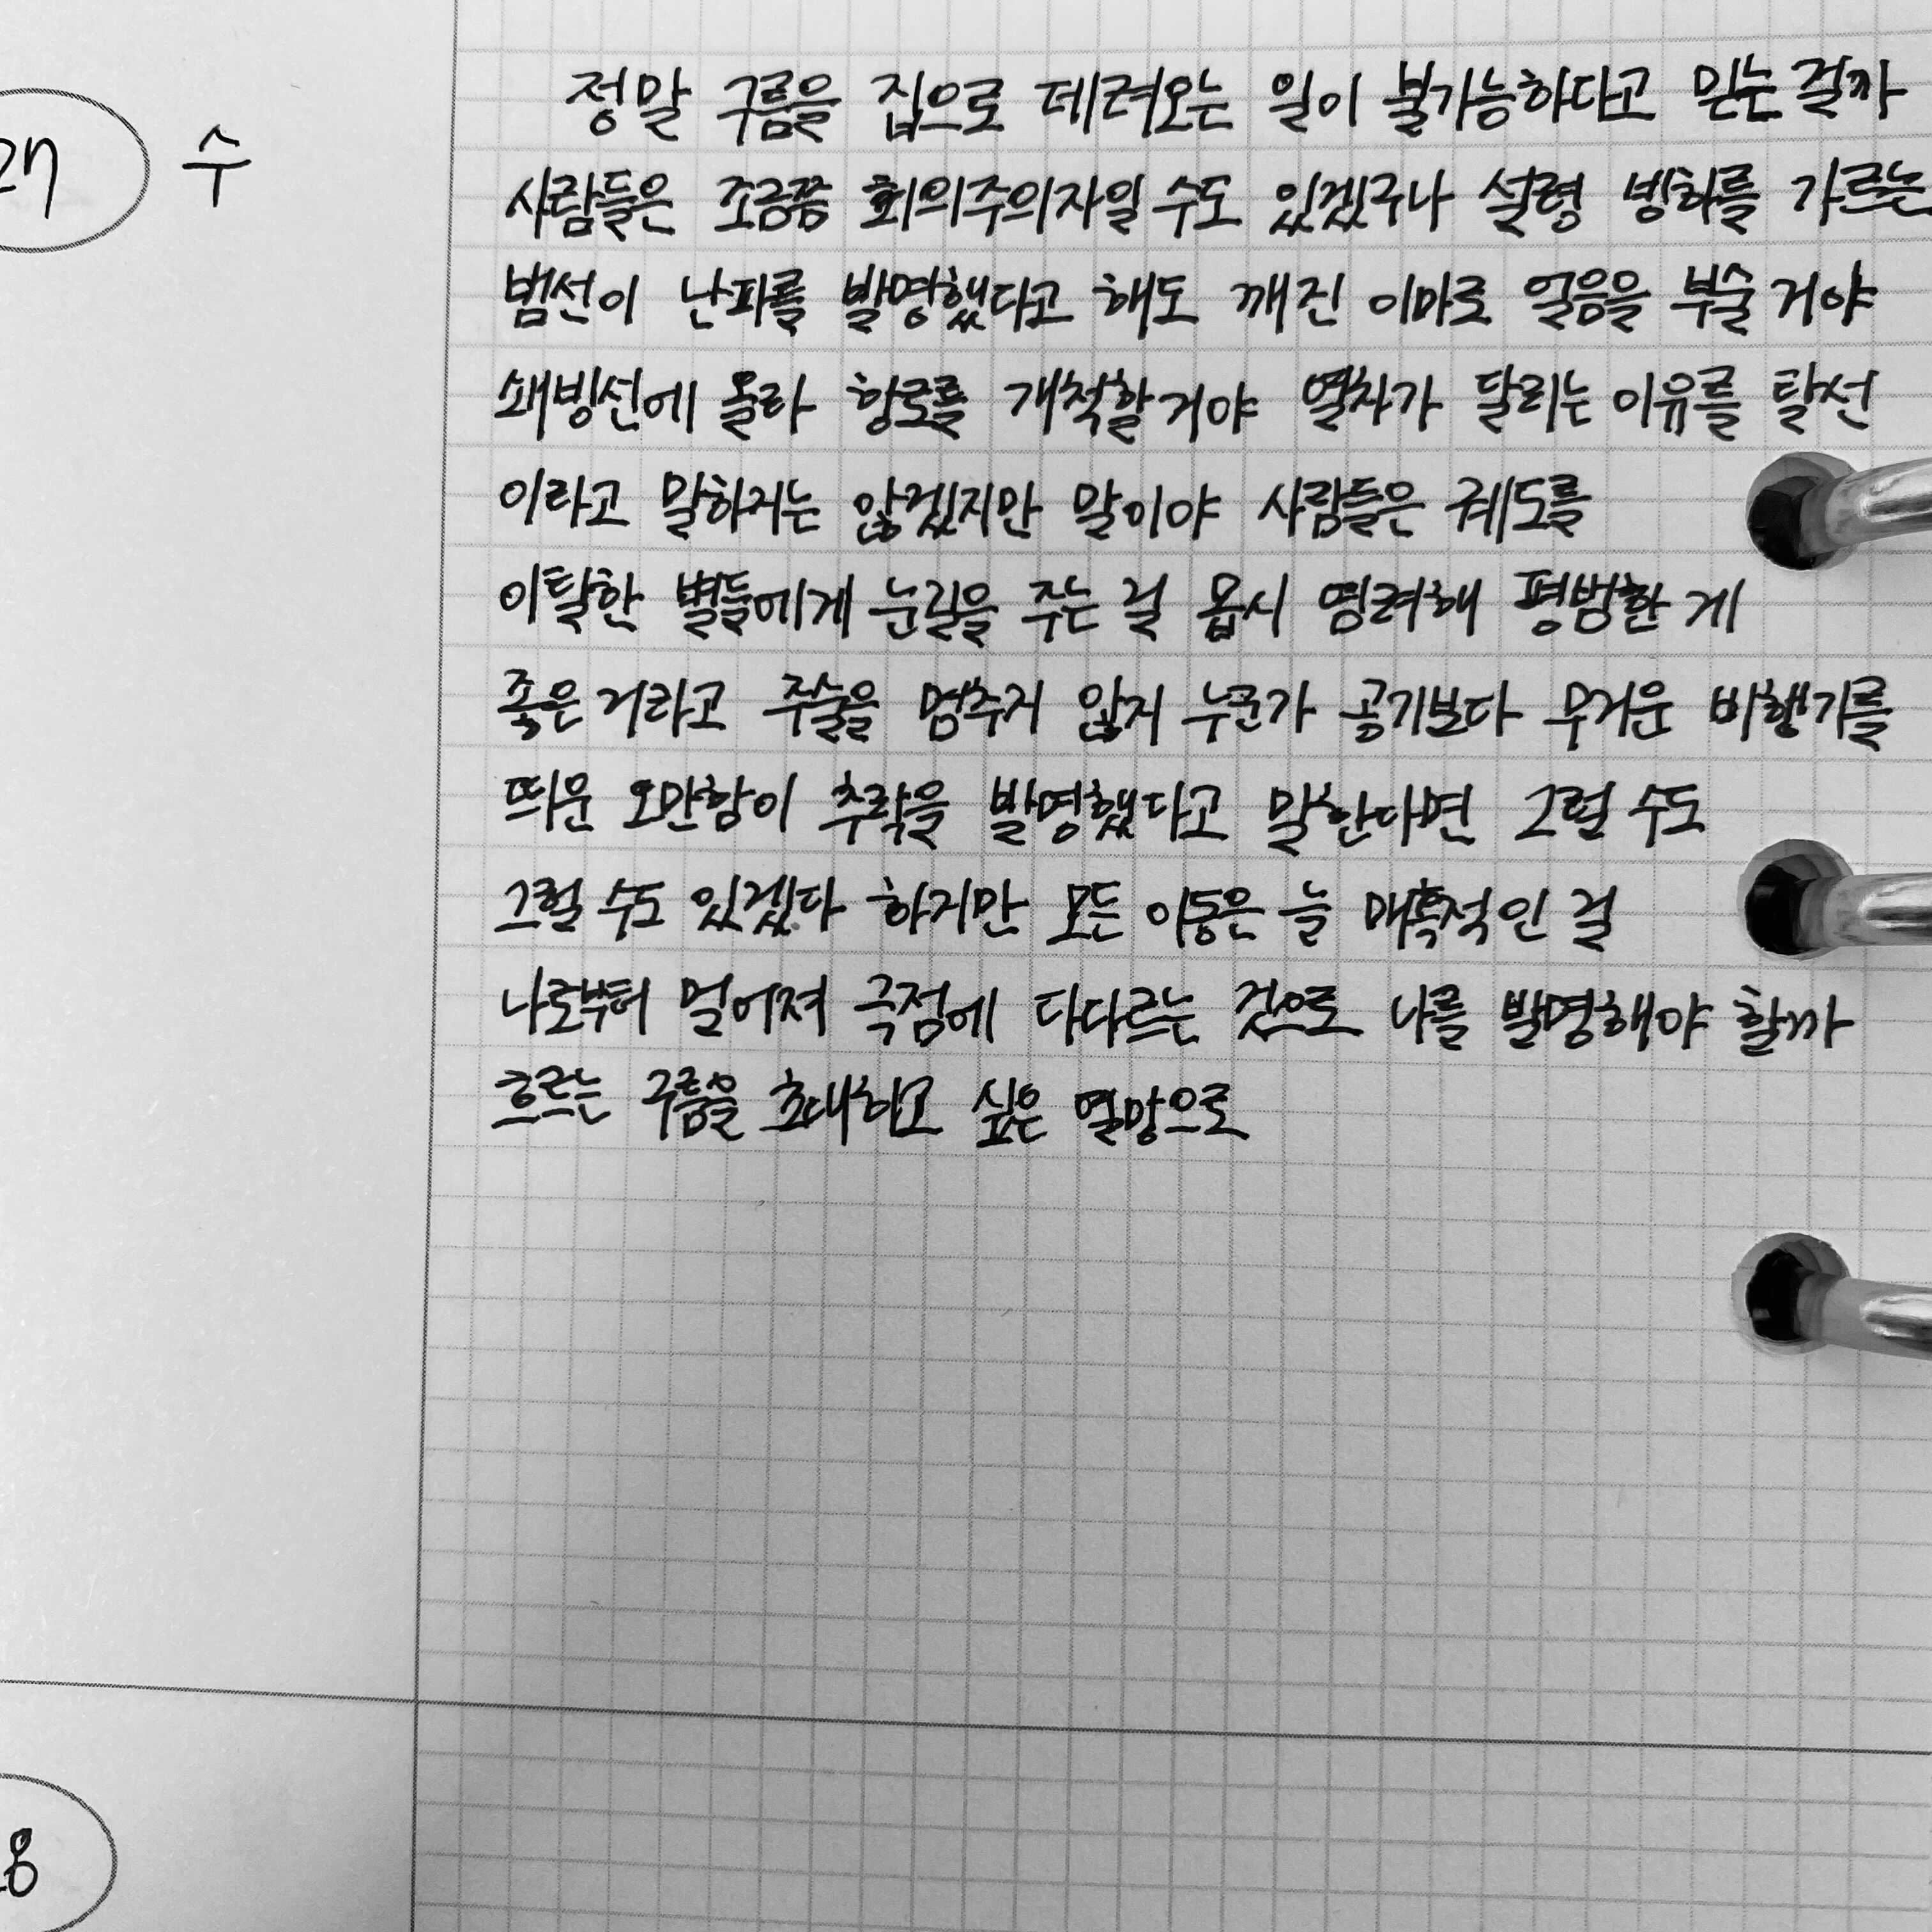 27 수
정말 구름을 집으로 데려오는 일이 불가능하다고 믿는 걸까
사람들은 조금쯤 회의주의자일 수도 있겠구나 설령 빙하를 가르는
범선이 난파를 발명했다고 해도 깨진 이마로 얼음을 부술 거야
쇄빙선에 올라 항로를 개척할 거야 열차가 달리는 이유를 탈선
이라고 말하지는 않겠지만 말이야 사람들은 궤도를
이탈한 별들에게 눈길을 주는 걸 몹시 염려해 평범한 게
좋은 거라고 주술을 멈추지 않지 누군가 공기보다 무거운 비행기를
띄운 오만함이 추락을 발명했다고 말한다면 그럴 수도
그럴 수도 있겠다 하지만 모든 이동은 늘 매혹적인 걸
나로부터 멀어져 극점에 다다르는 것으로 나를 발명해야 할까
흐르는 구름을 초대하고 싶은 열망으로
28